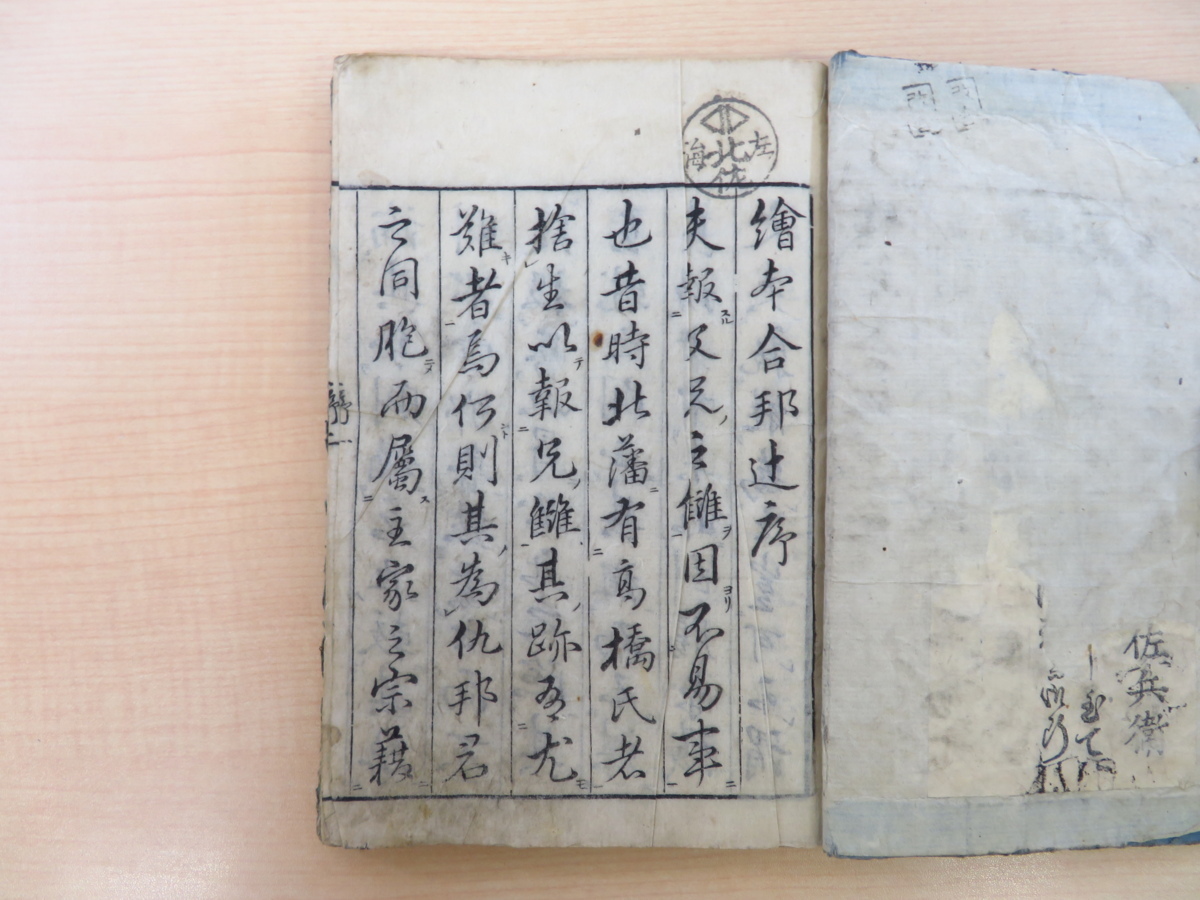 佐兵衛
左
北佐
海
繪本合邦辻序
夫報父兄之讎因不易事
也昔時北藩有高橋氏者
捨生以報兄讎其跡爲尤
難者焉何則其爲仇邦君
之同胞而屬主家之宗藉
序一